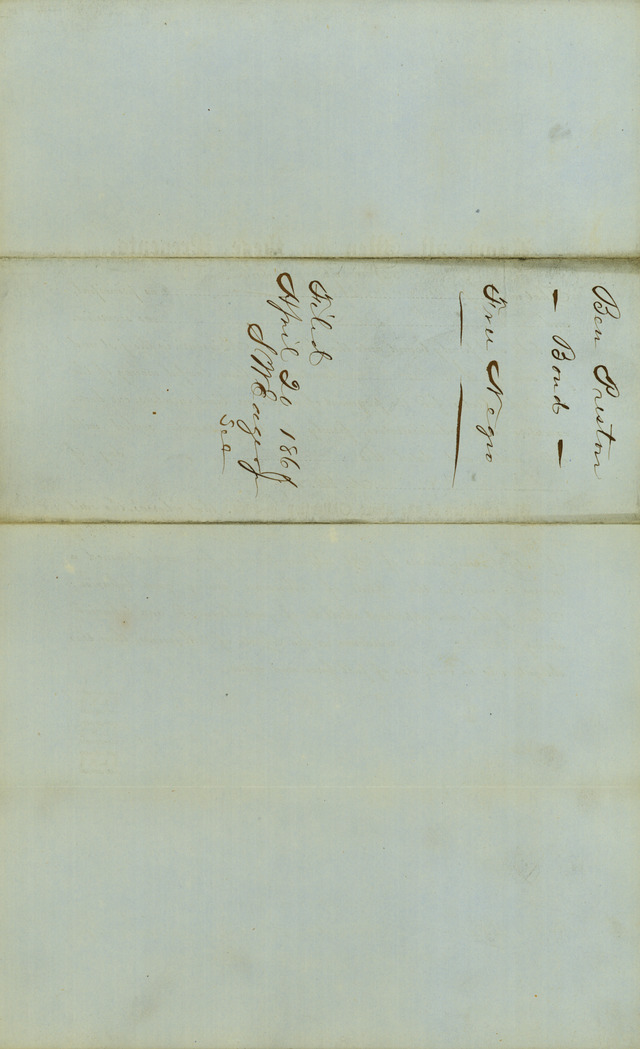 Ben Preston
— Bond —
Free Negro
Filed
April 20 186
S W Eager Jr